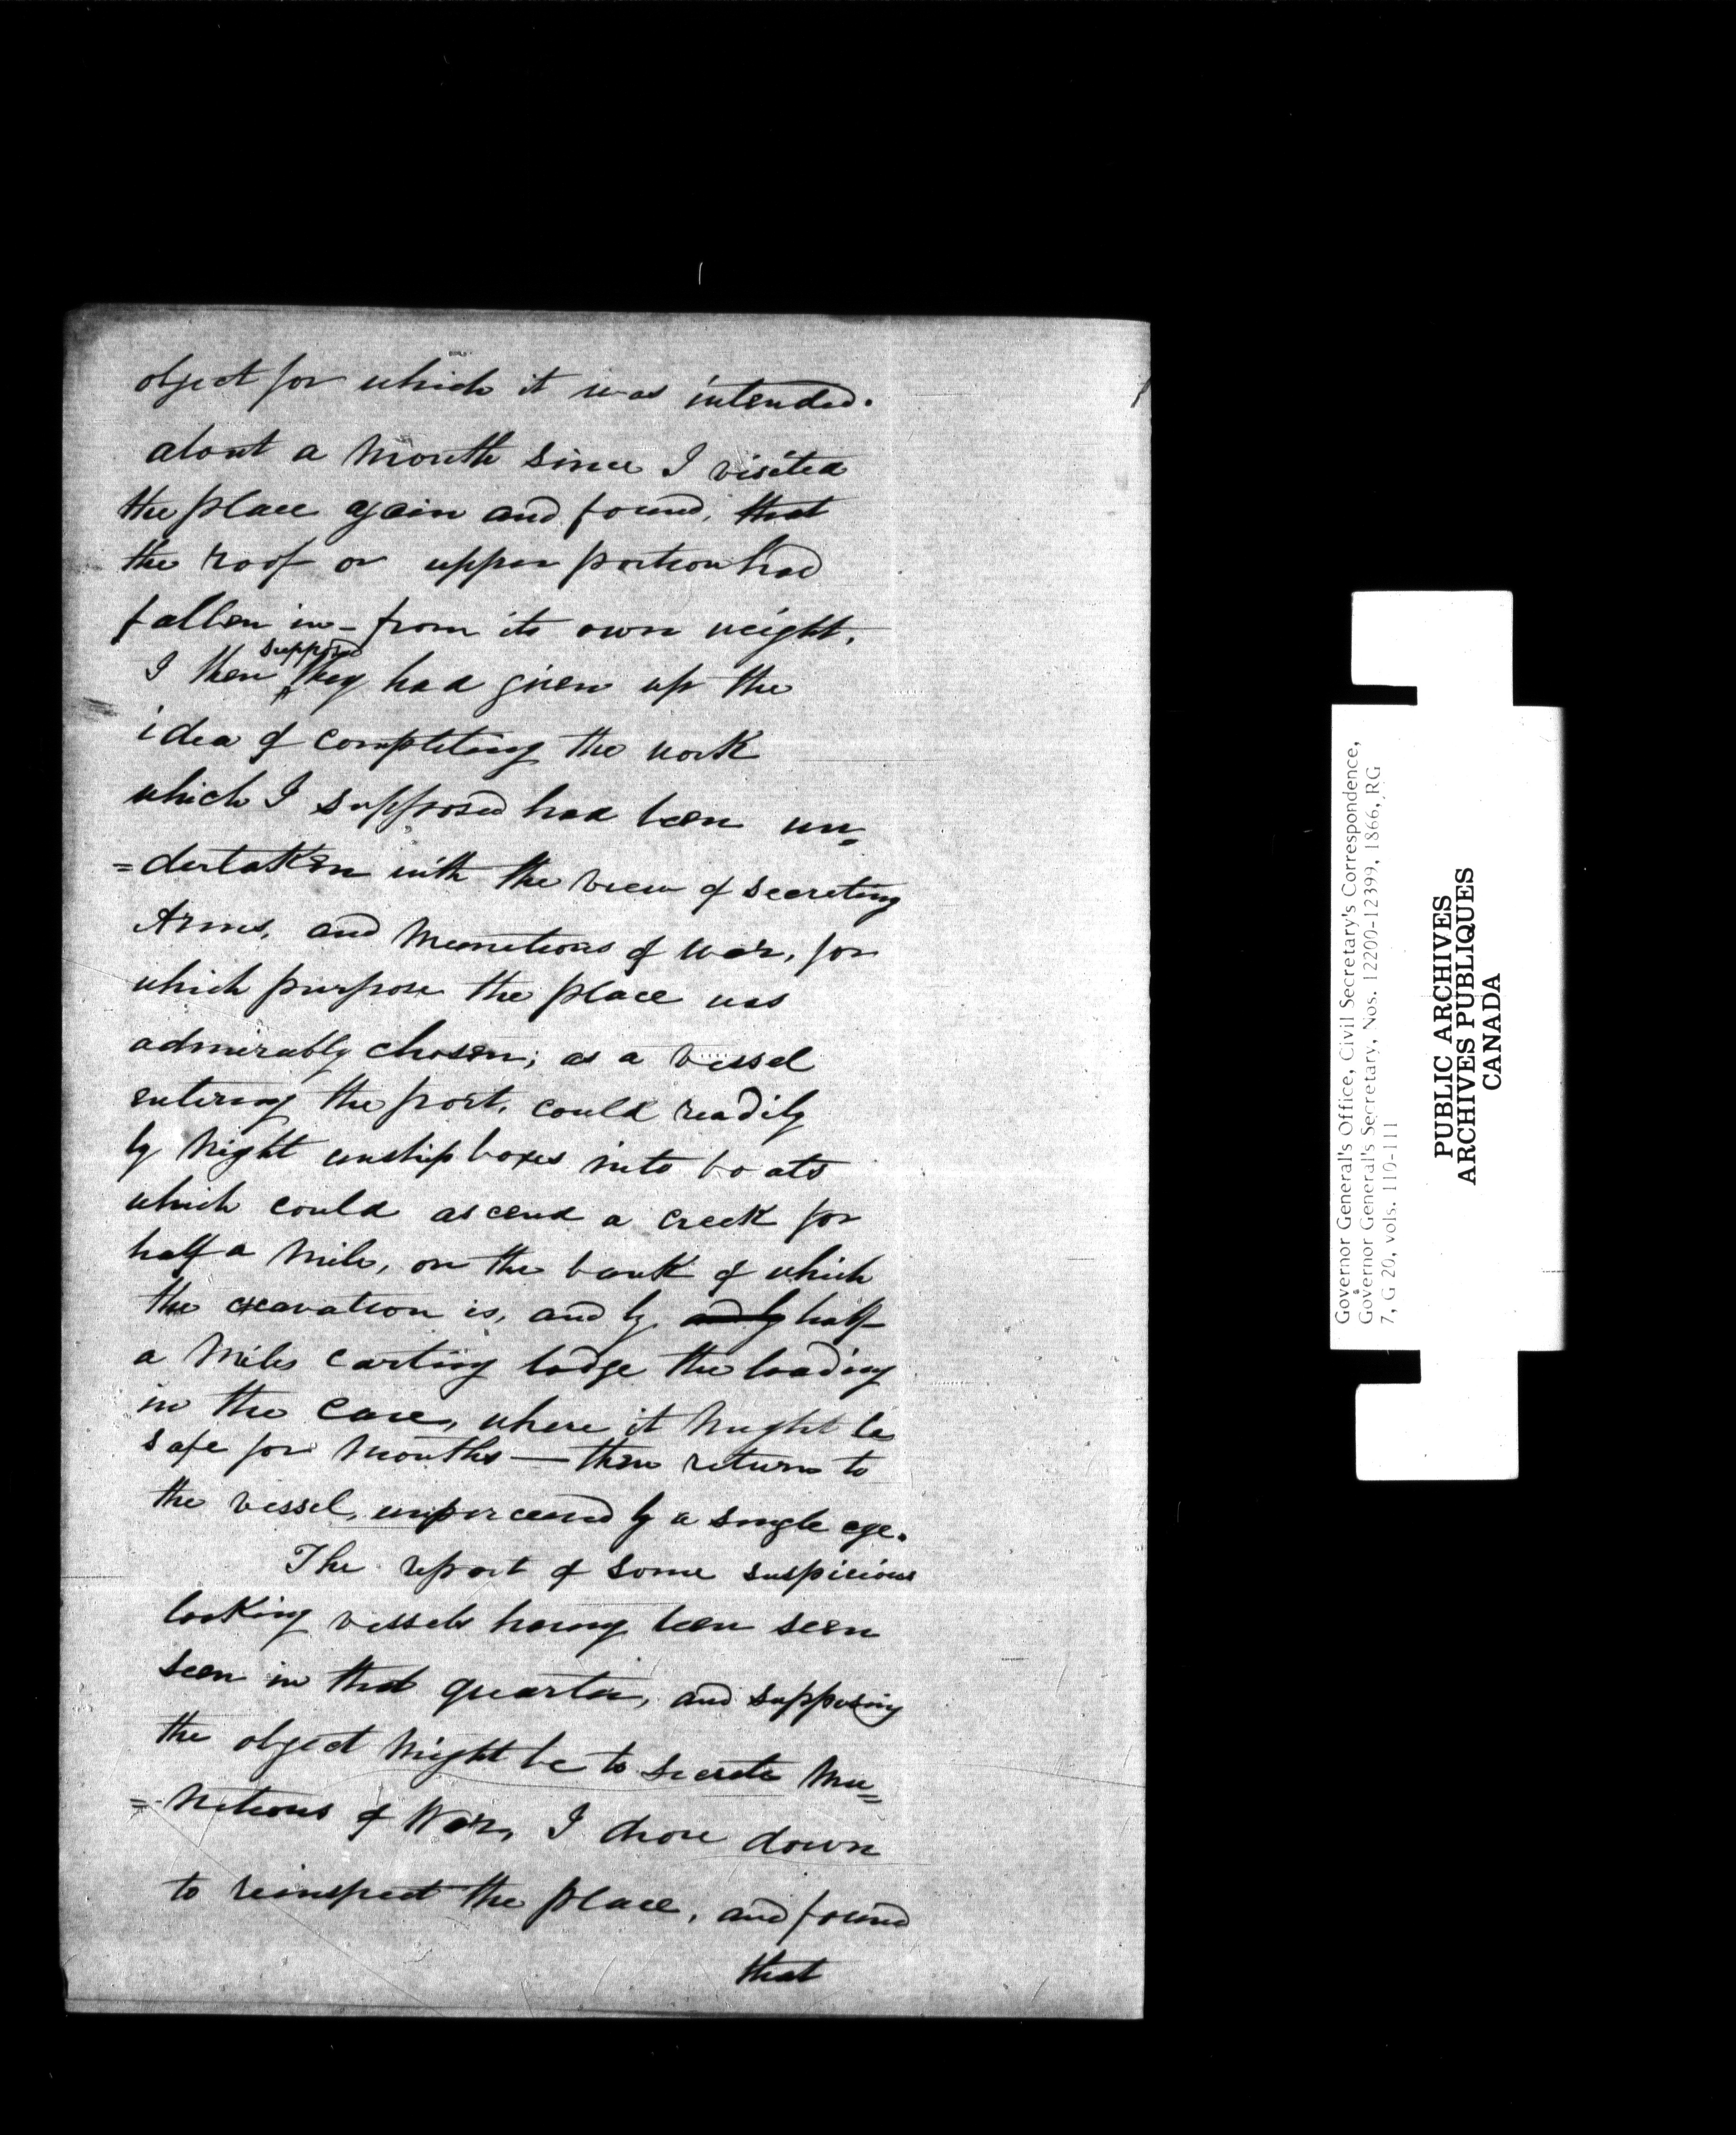 object for which it was intended.
about a Month since I visited
the place again and found, that
the roof or upper portion had
fallen in - from its own weight.
I then supposed they had given up the
idea of completing the work
which I supposed had been un=
=dertaken with the view of secreting
Arms, and Munitions of war, for
which purpose the place was
admirably chosen; as a vessel
entering the port, could readily
by Night unship boxes into boats
which could ascend a creek for
half a Mile, on the bank of which
the excavation is, and by and by half
a Miles carting lodge the loading
in the Cave, where it Might be
safe for Months — then return to
the vessel, unperceived by a single eye.
The report of some suspicious
looking vessels having been seen
seen in that quarter, and supposing
the object Might be to secrete Mu=
=nitions of War, I drove down
to reinspect the place, and found
that
Governor General's Office, Civil Secretary's Correspondence,
Governor General's Secretary, Nos. 12200-12399, 1866, RG
7, G 20, vols. 110-111
PUBLIC ARCHIVES
ARCHIVES PUBLIQUES
CANADA